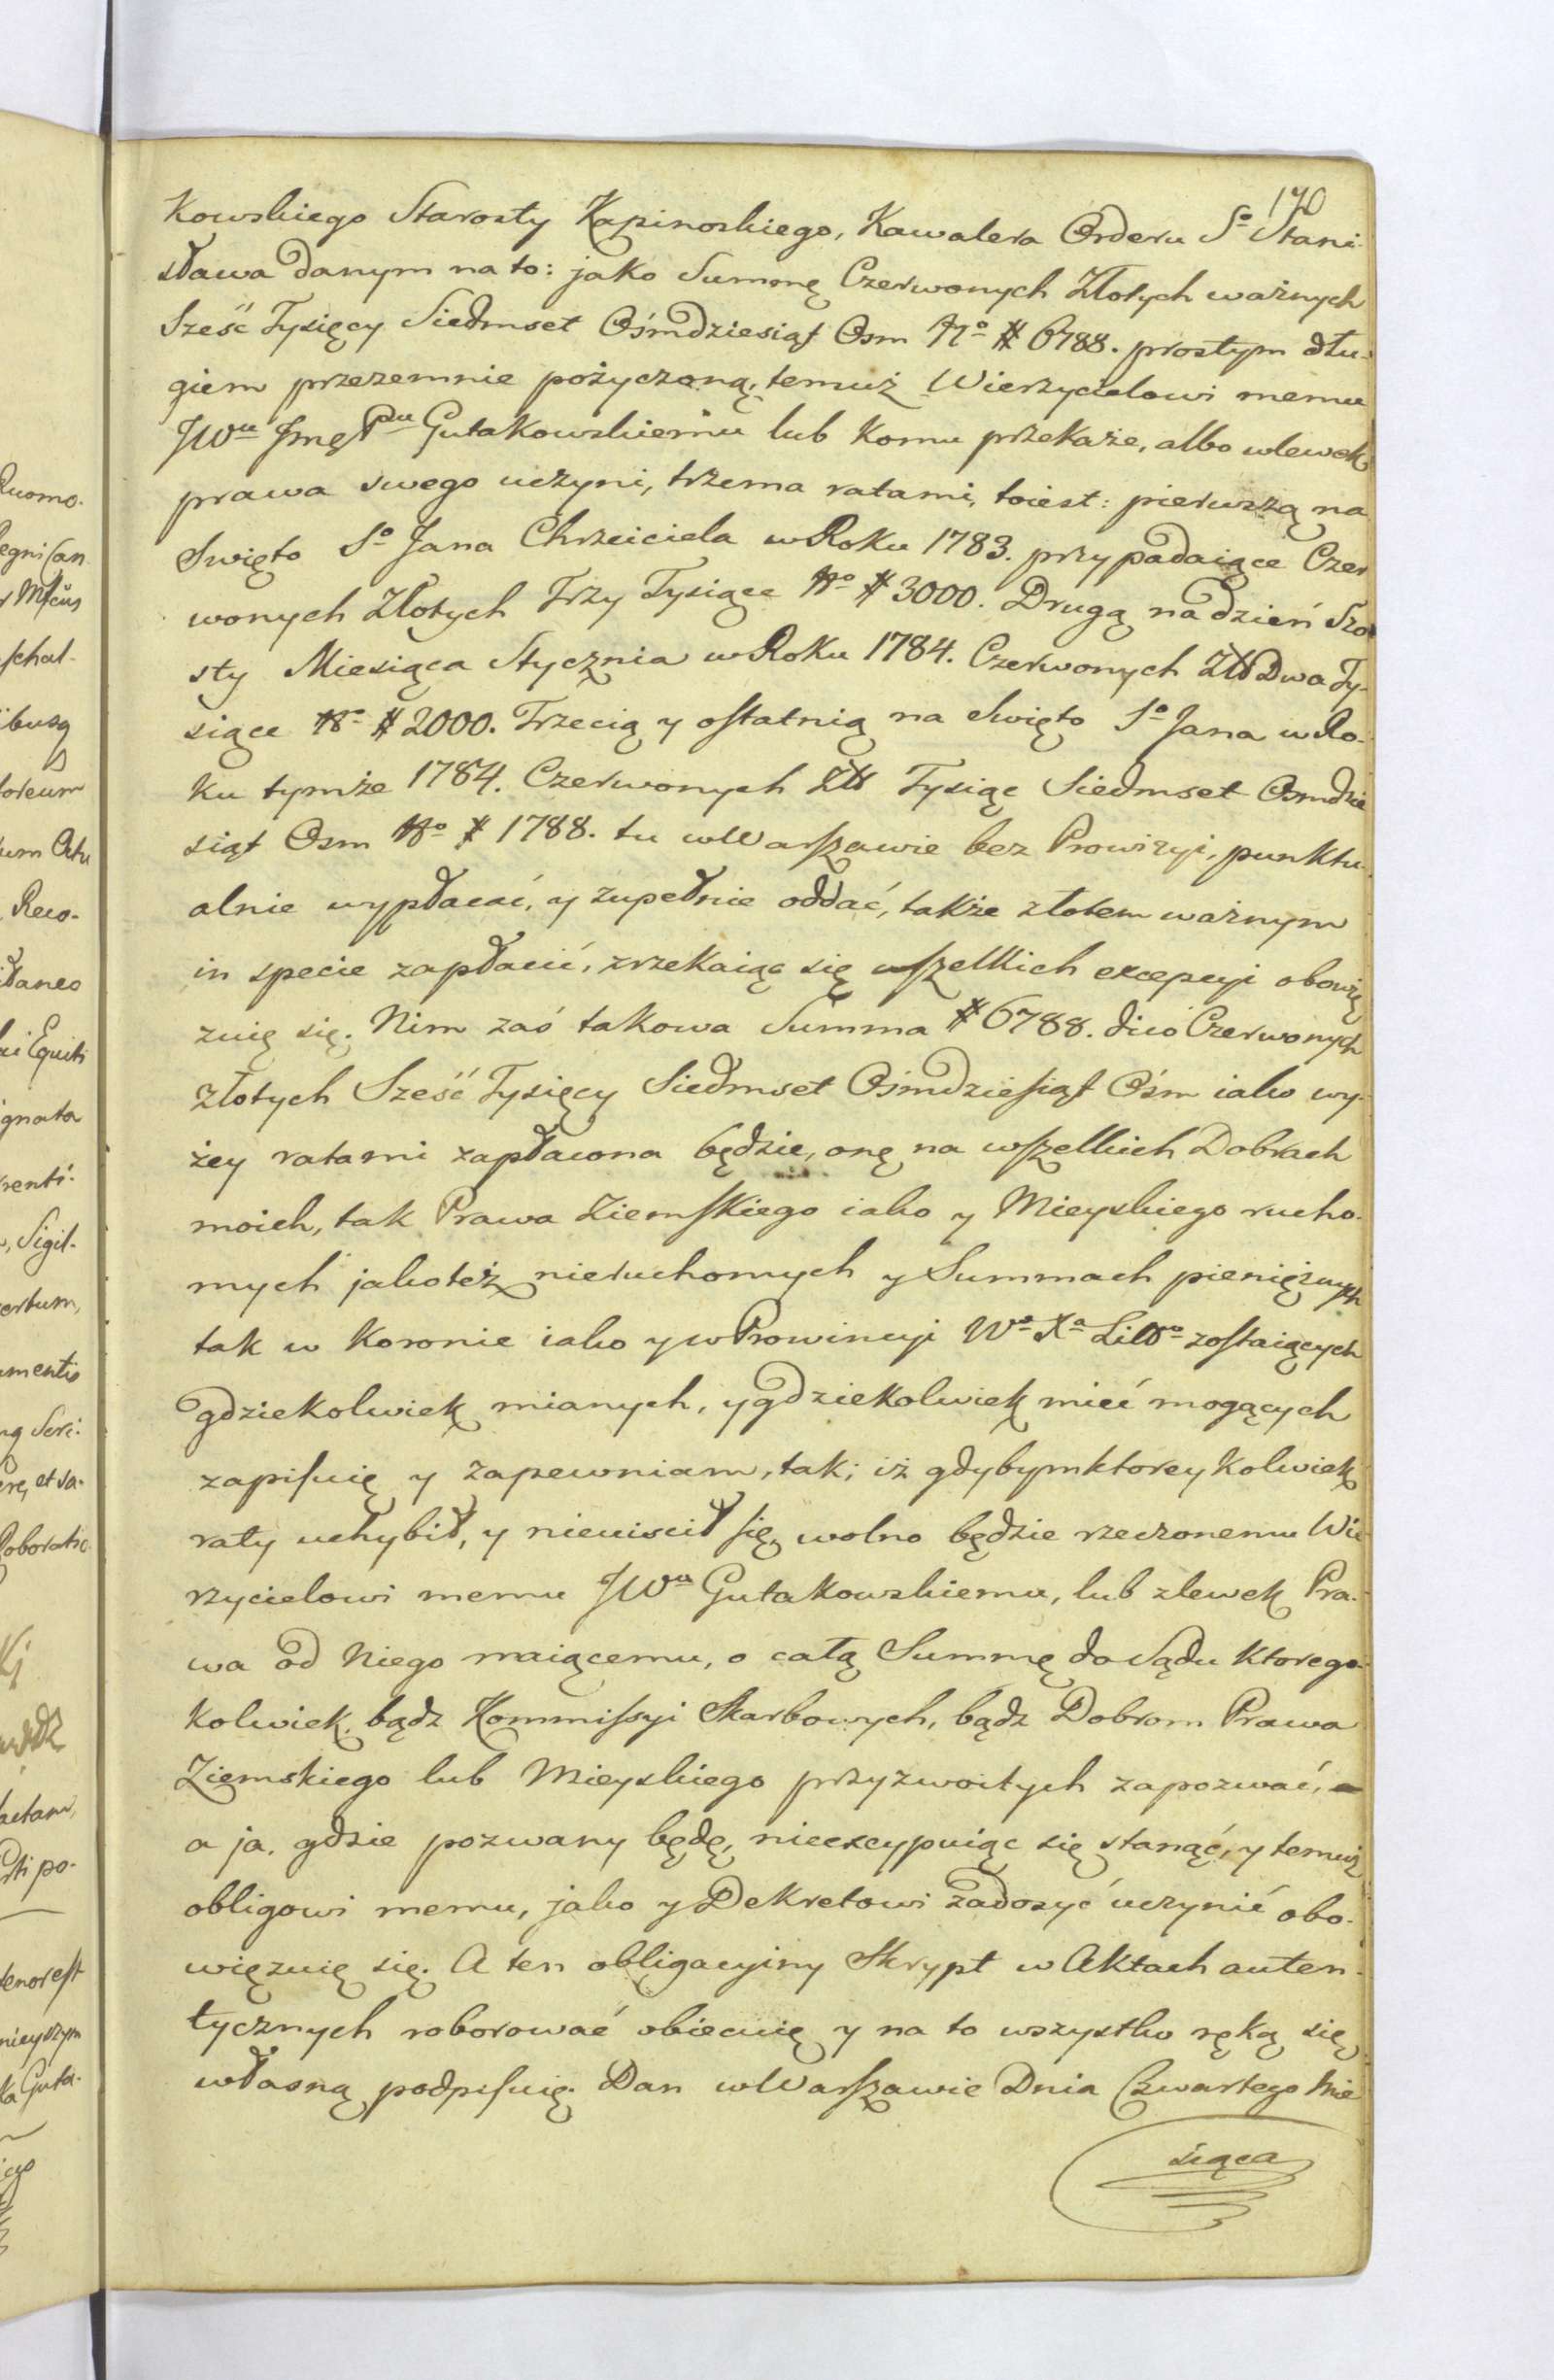 170
Kowskiego Starosty Kapinoskiego, Kawalera Orderu So Stani-
sława danym na to: jako Summę Czerwonych Złotych ważnych
Sześć Tysięcy Siedmset Ośmdziesiąt Osm No # 6788. prostym dłu-
giem przezemnie pożyczoną, temuż Wierzycielowi memu
JWu Jmę Pdu Gutakowskiemu lub komu przekaże, albo wlewek
prawa swego uczyni, trzema ratami, toiest: pierwszą na
Swięto So Jana Chrzciciela w Roku 1783. przypadaiące Czer
wonych Złotych Trzy Tysiące No # 3000. Drugą na dzień Szo
sty Miesiąca Stycznia w Roku 1784. Czerwonych Złł Dwa Ty-
siące No # 2000. Trzecią y ostatnią na Swięto So Jana w Ro-
ku tymże 1784. Czerwonych Złł Tysiąc Siedmset Osmdzie
siąt Osm No # 1788. tu w Warszawie bez Prowizyi, punktu-
alnie wypłacać, y zupełnie oddać, także złotem ważnym
in specie zapłacić, zrzekaiąc się wszelkich excepcyi obowię
zuię się. Nim zaś takowa Summa # 6788. dico Czerwonych
Złotych Sześć Tysięcy Siedmset Ośmdziesiąt Ośm iako wy-
żey ratami zapłacona będzie, onę na wszelkich Dobrach
moich, tak Prawa Ziemskiego iako y Mieyskiego rucho-
mych jakoteż nieruchomych y Summach pieniężnych
tak w Koronie iako y w Prowincyi Wo Xa Litto zostaiących
gdziekolwiek mianych, y gdziekolwiek mieć mogących
zapisuię y zapewniam, tak; iż gdybym ktorey kolwiek
raty uchybił, y nieuiscił się, wolno będzie rzeczonemu Wie
rzycielowi memu JWu Gutakowskiemu, lub zlewek Pra-
wa od Niego maiącemu, o całą Summę do Sądu ktorego-
kolwiek, bądz Kommissyi Skarbowych, bądz Dobrom Prawa
Ziemskiego lub Mieyskiego przyzwoitych zapozwać, -
a ja, gdzie pozwany będę, nieexcypuiąc się stanąć, y temuż
obligowi memu, jako y Dekretowi zadosyć uczynić obo-
więzuię się. A ten obligacyiny Skrypt w Aktach auten-
tycznych roborować obiecuię y na to wszystko ręką się
własną podpisuię. Dan w Warszawie Dnia Czwartego Mie
siąca